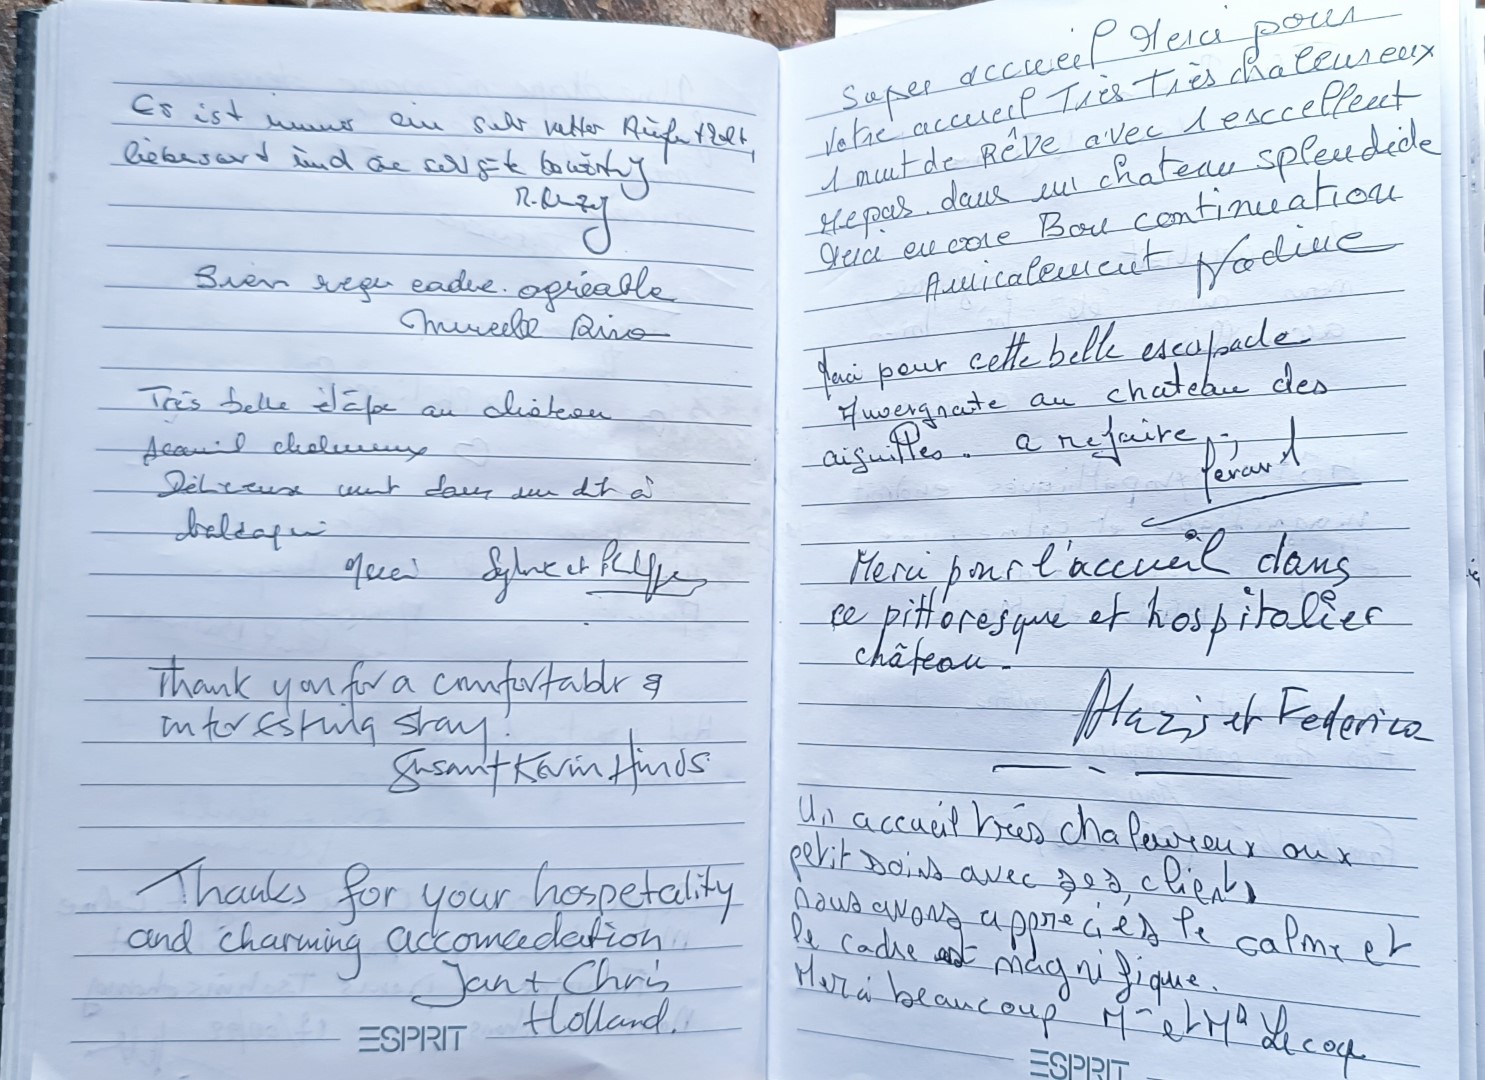 Es ist immer ein sehr netter
liebevoll und
Bien reçu cadre agréable
Très belle étape au château
Accueil chaleureux
Délicieuse nuit dans un lit à
baldaquin
Merci Sylvie et Philippe
Thank you for a comfortable &
interesting stay.
Susan + Kevin Hinds
Thanks for your hospetality
and charming accomodation
Jan + Chris
Holland.
ESPRIT
Super accueil Merci pour
votre accueil Très Très chaleureux
1 nuit de Rêve avec 1 exccellent
repas dans un chateau splendide
Merci encore Bon continuation
Amicalement Nadine
Merci pour cette belle escapade
Auvergnate au chateau des
aiguilles. a refaire
Merci pour l'accueil dans
ce pittoresque et hospitalier
château.
et Federica
Un accueil très chaleureux aux
petit soins avec ses clients
nous avons appréciés le calme et
le cadre est magnifique.
Merci beaucoup Mr et Me Lecoq
ESPRIT